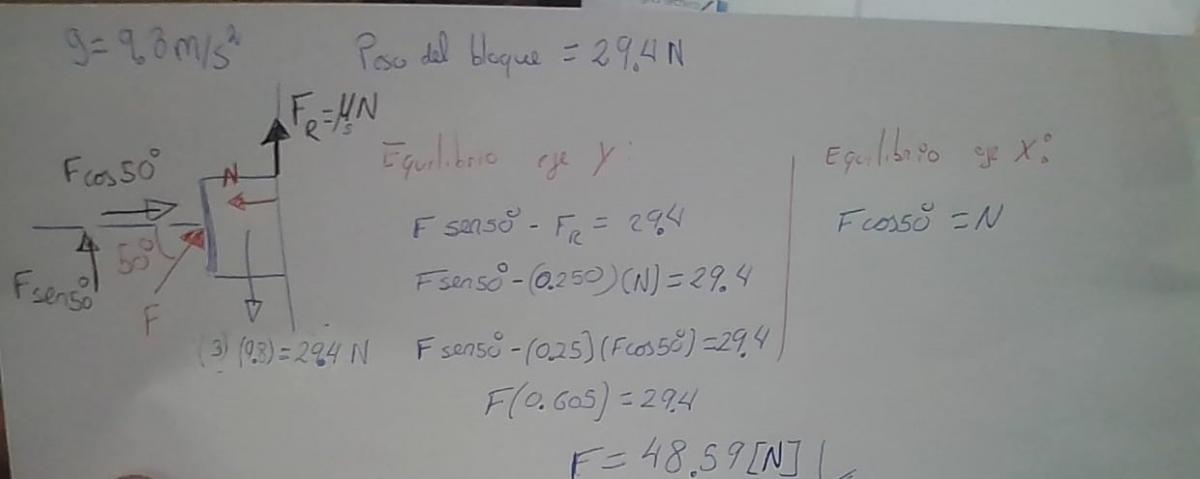 g = 9,8 m/s²
Peso del bloque = 29.4 N
F_R = μ_s N
F cos 50°
N
50°
F sen 50°
F
(3) (9.8) = 29.4 N
Equilibrio eje Y:
F sen 50° - F_R = 29.4
F sen 50° - (0.250) (N) = 29.4
F sen 50° - (0.25) (F cos 50°) = 29.4
F (0.605) = 29.4
F = 48.59 [N]
Equilibrio eje X:
F cos 50° = N